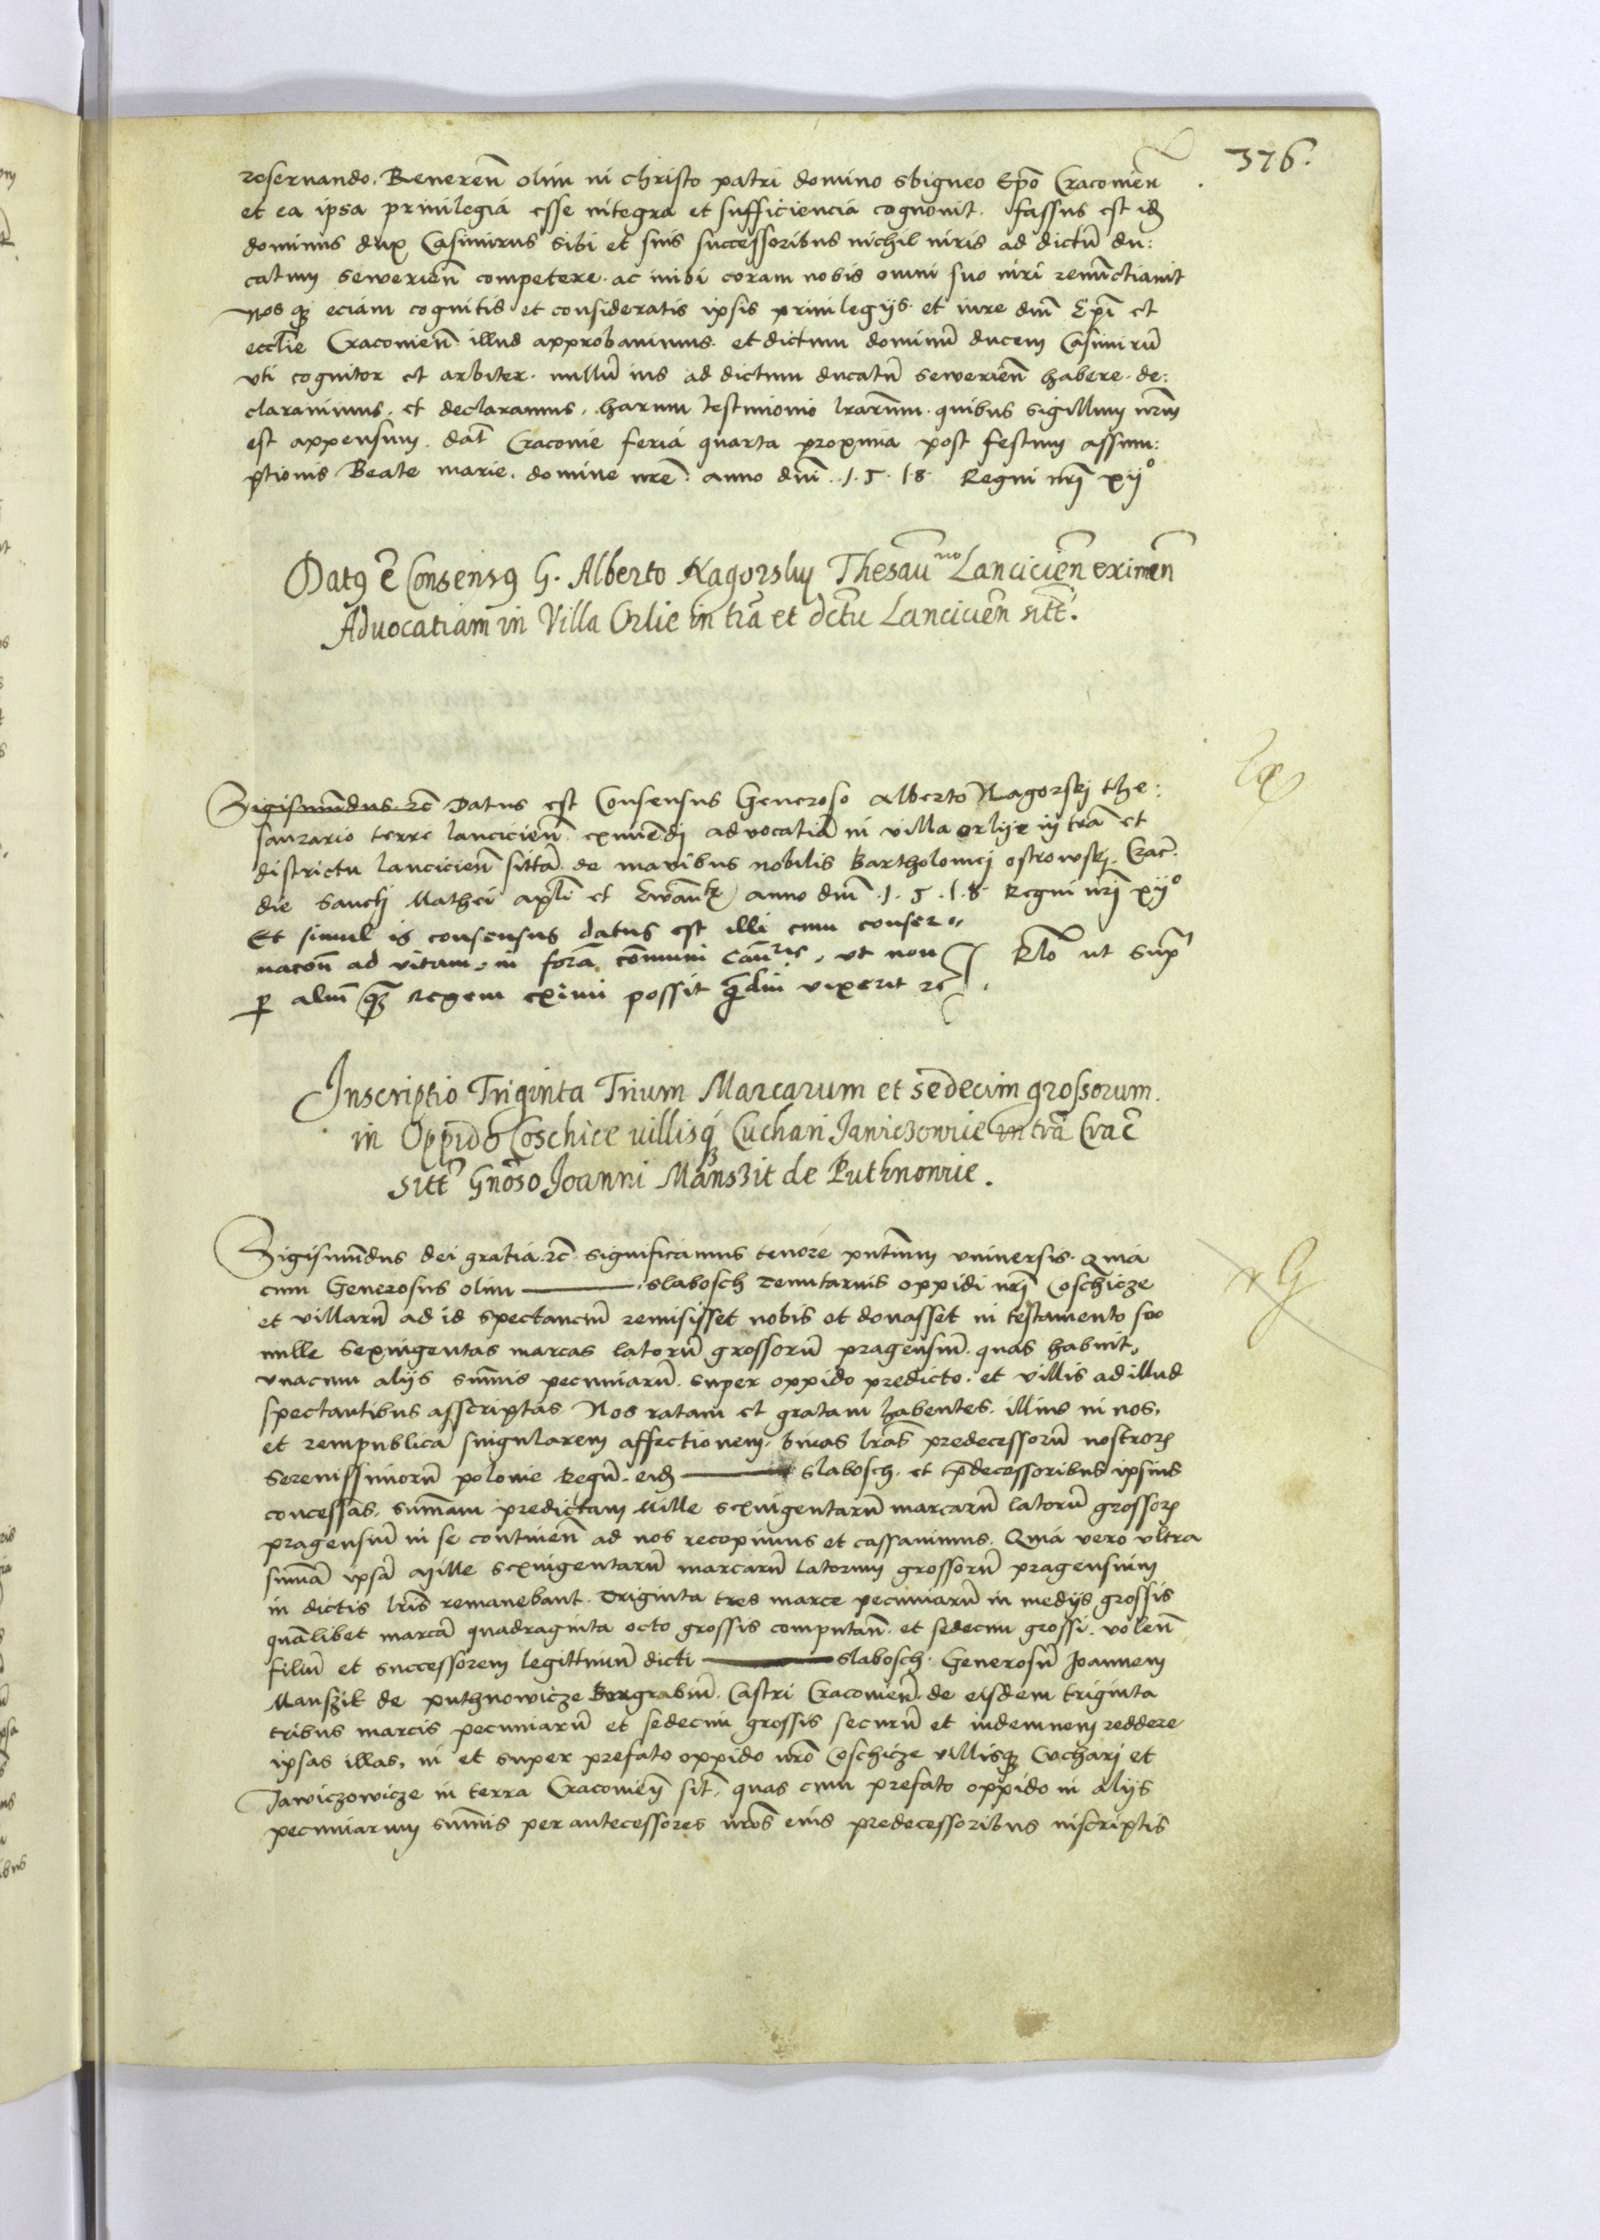 376.
reseruando. Reueren̄ olim in christo patri domino sbigneo Ep̄o Cracouien̄
et ea ipsa priuilegia esse integra et sufficiencia cognouit. fassus est id̄
dominus dux Casimirus sibi et suis successoribus nichil iuris ad dictū du:
catum sewerien̄ competere. ac inibi coram nobis omni suo iuri renūctiauit
Nos qȝ eciam cognitis et consideratis ipsis priuilegijs. et iure dn̄i Ep̄i et
eccl̄ie Cracouien̄ illud approbauimus. et dictum dominū ducem Casimirū
vti cognitor et arbiter. nullū ius ad dictum ducatū sewerien̄ habere. de:
clarauimus. et declaramus. harum testimonio l̄rarum. quibus sigillum nr̄m
est appensum. dat̄ Cracouie feria quarta proxima post festum assum:
ptionis Beate marie. domine nr̄e. anno dn̄i .1.5.18. Regni nr̄i xijº
Datꝯ ē Consensꝯ G. Alberto Nagorskij Thesauno Lancicien̄ eximen̄
Aduocatiam in Villa Orlie in tr̄a et dc̄tu Lancicien̄ sitt̄.
Sigismūdus ꝛc̄ Datus est Consensus Generoso Alberto Nagorskj the:
saurario terre lancicien̄ eximēdj aduocatiā in villa orlije in tr̄a et
districtu lancicien̄ sittā. de manibus nobilis Bartholomej ostrowskj. Crac̄.
die Sanctj Mathei apl̄i et Ewan̄ anno dn̄i .1.5.1.8. Regni nr̄i xijº
Et simul is consensus datus est illi cum conser=
uacōn ad vitam. in forā cōmuni . vt non
ꝑ aliū qȝ Regem eximi possit q̄diu vixerit ꝛc̄
Rl̄o ut sup̄
Inscriptio Triginta Trium Marcarum et sedecim grossorum.
in Oppido Coschice uillisqȝ Cuchari Janiczowie in tr̄a Crac̄
sitt̄ Gn̄oso Joanni Manszit de Puthnowie.
Sigismūdus dei gratia ꝛc̄ significamus tenore pn̄tium vniuersis. Quia
cum Generosus olim ——— slabosch tenutarius oppidi nr̄i Coschicze
et villarū ad id spectanciū remisisset nobis et donasset in testamento suo
mille sexingentas marcas latorū grossorū pragensiū. quas habuit,
vnacum alijs sūmis pecuniarū. super oppido predicto. et villis ad illud
spectantibus asscriptas Nos ratam et gratam habentes. illius in nos,
et rempublicā singularem affectionem, binas l̄ras predecessorū nostroꝝ
Serenissimorū polonie Regū. eid̄ ——— slabosch. et p̄decessoribus ipsius
concessas. sum̄am predictam Mille sexingentarū marcarū latorū grossoꝝ
pragensiū in se continen̄ ad nos recepimus et cassauimus. Quia vero vltra
sum̄ā ipsā Mille sexingentarū marcarū latorum grossorū pragensium
in dictis l̄ris remanebant. Triginta tres marce pecuniarū in medijs grossis
quālibet marcā quadraginta octo grossis computan̄. et sedecim grossi. volen̄
filiū et successorem legittimū dicti ——— slabosch. Generosū Joannem
Manszik de puthnowicze Burgrabiū. Castri Cracouien̄. de eisdem triginta
tribus marcis pecuniarū et sedecim grossis securū et indemnem reddere
ipsas illas, in et super prefato oppido nr̄o Coschicze villisqȝ Cucharj et
Jawiczowicze in terra Cracouien̄ sit̄. quas cum prefato oppido in alijs
pecuniarum sum̄is per antecessores nr̄os eius predecessoribus inscriptis